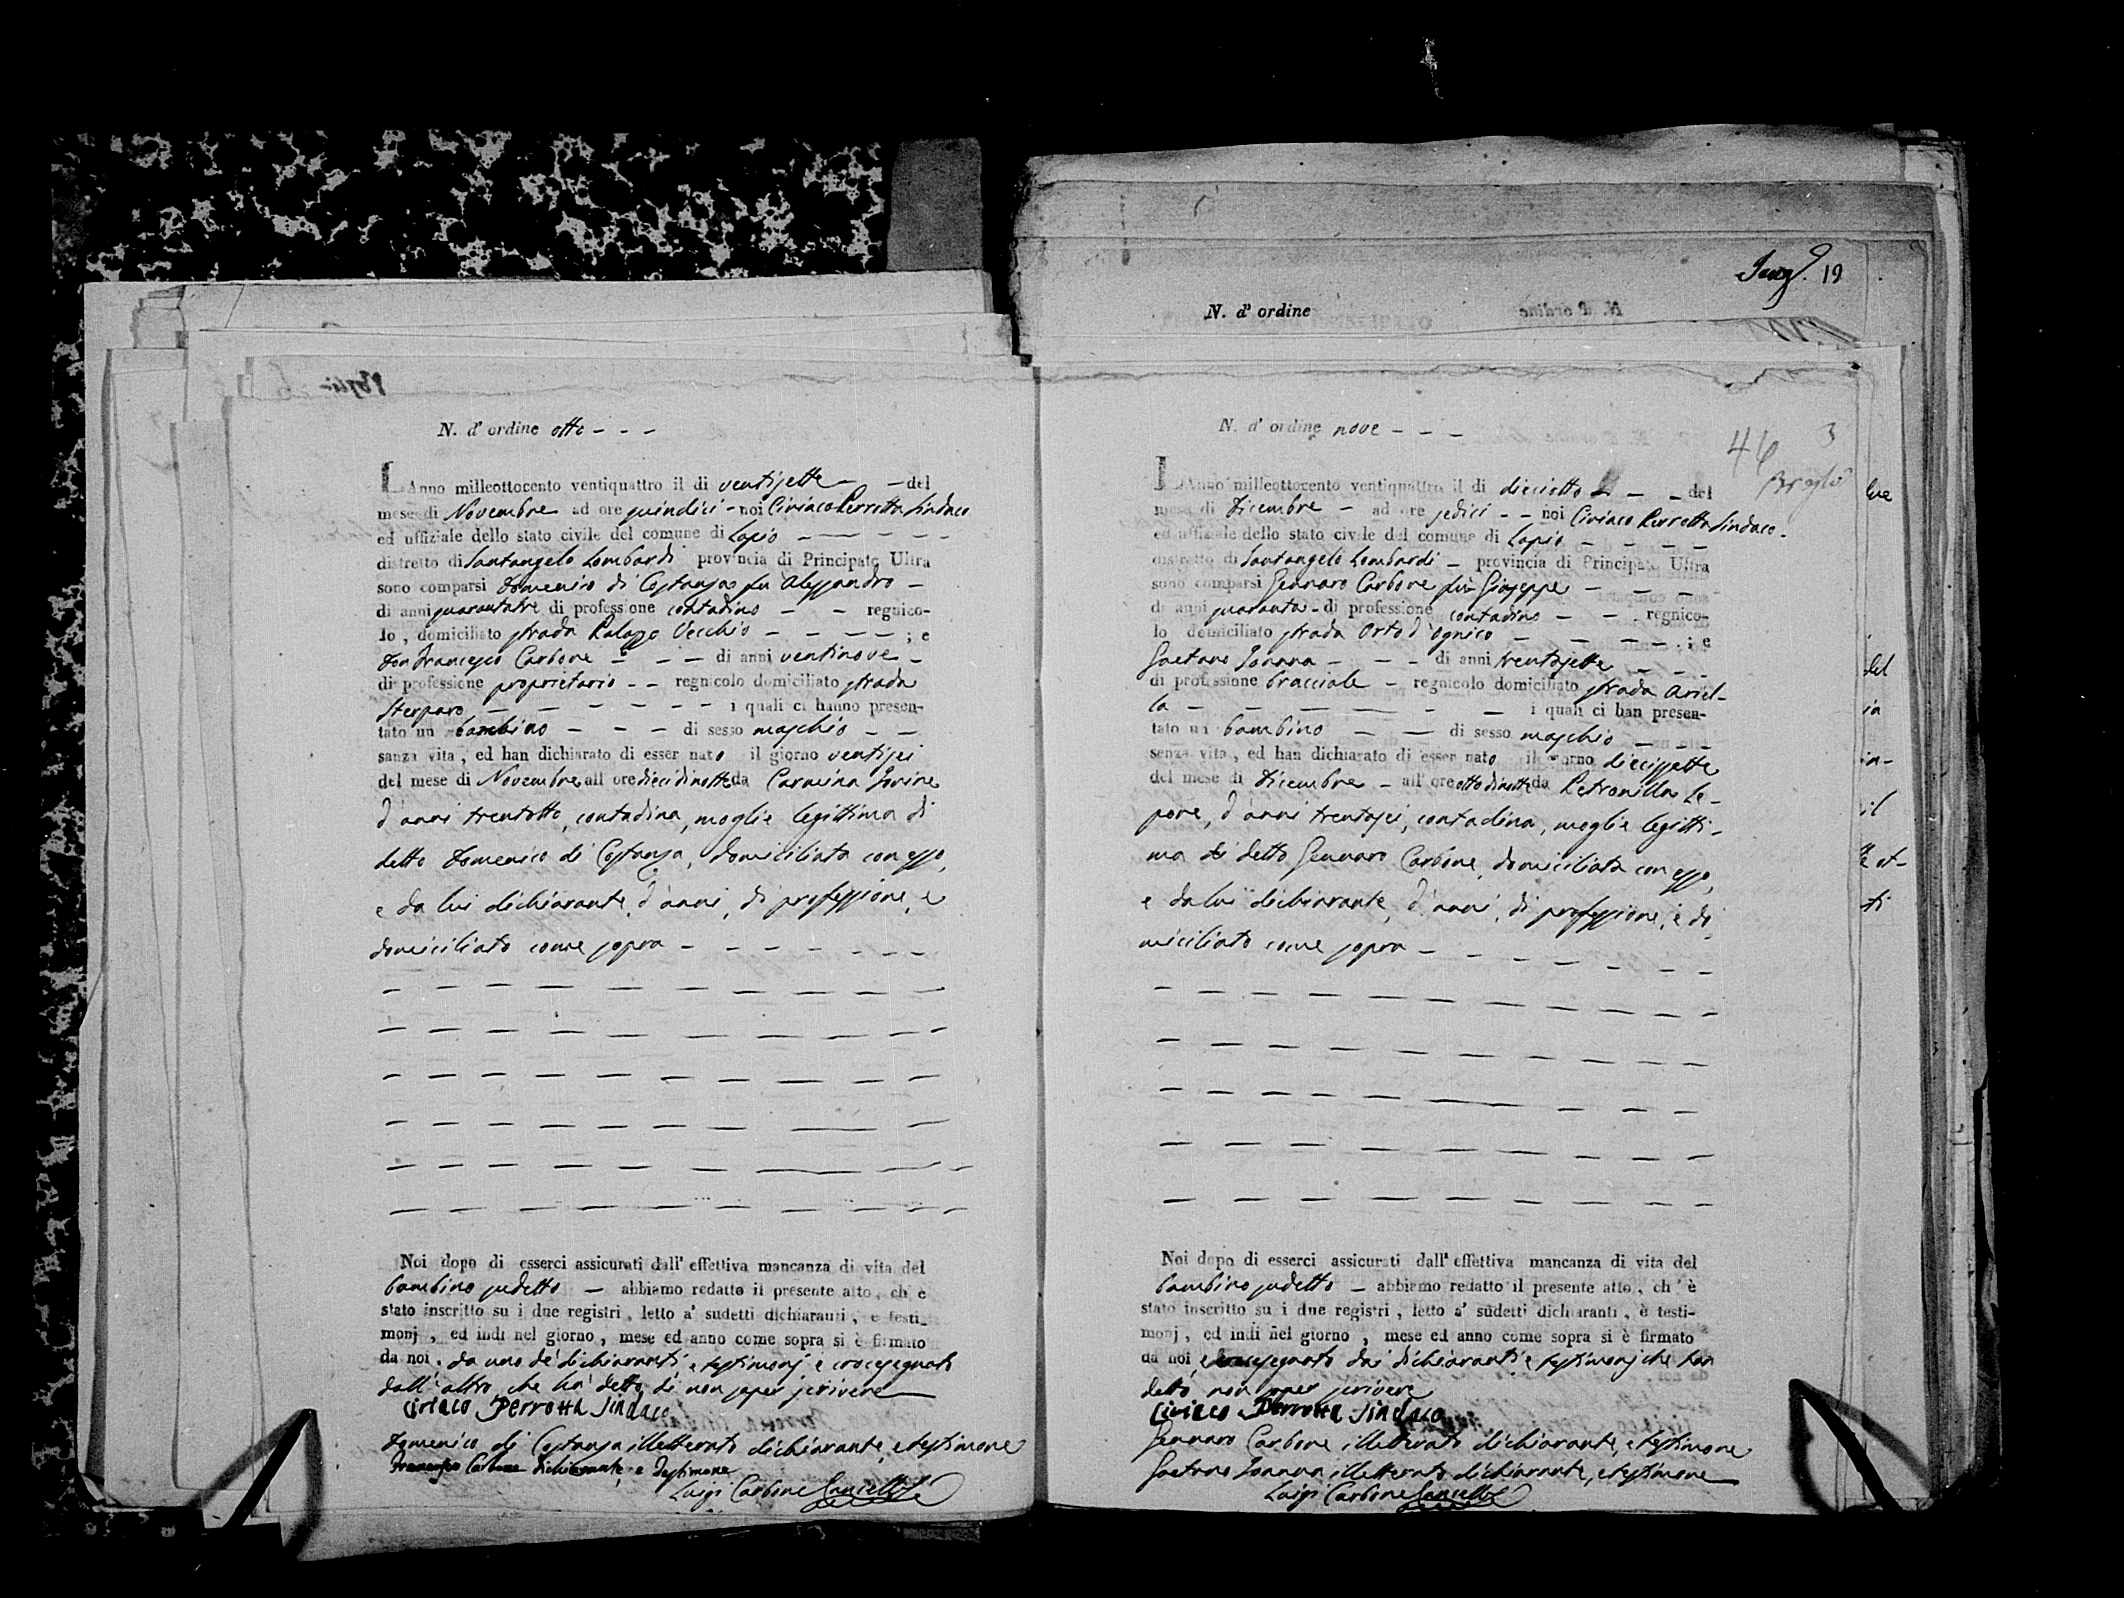 N. d' ordine otto - - -
L'Anno milleottocento ventiquattro il di ventisette - - del
mese di Novembre ad ore quindici - noi Ciriaco Perrotta Sindaco
ed uffiziale dello stato civile del comune di Lapio - - - - -
distretto di Santangelo Lombardi provincia di Principato Ultra
sono comparsi Domenico di Costanza fu Alessandro -
di anni quarantatre di professione contadino - - regnico-
lo, domiciliato strada Palazzo Vecchio - - - - ; e
Don Francesco Carbone - - - di anni ventinove -
di professione proprietario - - regnicolo domiciliato strada
Sterparo - - - - - - i quali ci hanno presen-
tato un bambino - - - di sesso maschio - -
sanza vita, ed han dichiarato di esser nato il giorno ventisei
del mese di Novembre all ore dieci di notte da Carmina Iovine
d'anni trentotto, contadina, moglie legittima di
detto Domenico di Costanza, domiciliata con esso,
e da lui dichiarante, d'anni, di professione, e
domiciliato come sopra - - - - - - -
Noi dopo di esserci assicurati dall' effettiva mancanza di vita del
bambino sudetto - abbiamo redatto il presente atto, ch' è
stato inscritto su i due registri, letto a' sudetti dichiaranti, e testi
monj, ed indi nel giorno, mese ed anno come sopra si è firmato
da noi, da uno de' dichiaranti e testimonj e crocesegnato
dall' altro, che ha detto di non saper scrivere
Ciriaco Perrotta Sindaco
Domenico di Costanza illetterato dichiarante, e testimone
Francesco Carbone dichiarante e Testimone
Luigi Carbone Cancell.
Iung. 19
N. d' ordine
N. d' ordine nove - - -
46 3
L'Anno milleottocento ventiquattro il di dieciotto - - del
mese di Dicembre - ad ore sedici - - noi Ciriaco Perrotta Sindaco -
ed uffiziale dello stato civile del comune di Lapio - - - -
distretto di Santangelo Lombardi - provincia di Principato Ultra
sono comparsi Gennaro Carbone fu Giuseppe - - -
di anni quaranta - di professione contadino - - regnico-
lo domiciliato strada Orto d'Ognico - - - - ; e
Gaetano Ioanna - - - di anni trentasette - - -
di professione bracciale - regnicolo domiciliato strada Ariel-
la - - - - - - i quali ci han presen-
tato un bambino - - di sesso maschio - - -
senza vita, ed han dichiarato di esser nato il giorno diecissette
del mese di Dicembre - all' ore otto di notte da Petronilla Le-
pore, d'anni trentasei, contadina, moglie legitti-
ma di detto Gennaro Carbone, domiciliata con esso,
e da lui dichiarante, d'anni, di professione, e do
miciliato come sopra - - - - - - -
Noi dopo di esserci assicurati dall' effettiva mancanza di vita del
bambino sudetto - abbiamo redatto il presente atto, ch' è
stato inscritto su i due registri, letto a' sudetti dichiaranti, è testi-
monj, ed indi nel giorno, mese ed anno come sopra si è firmato
da noi e crocesegnato dai dichiaranti e testimonj che han
detto non saper scrivere
Ciriaco Perrotta Sindaco
Gennaro Carbone illetterato dichiarante, e testimone
Gaetano Ioanna illetterato dichiarante, e testimone
Luigi Carbone Cancell.